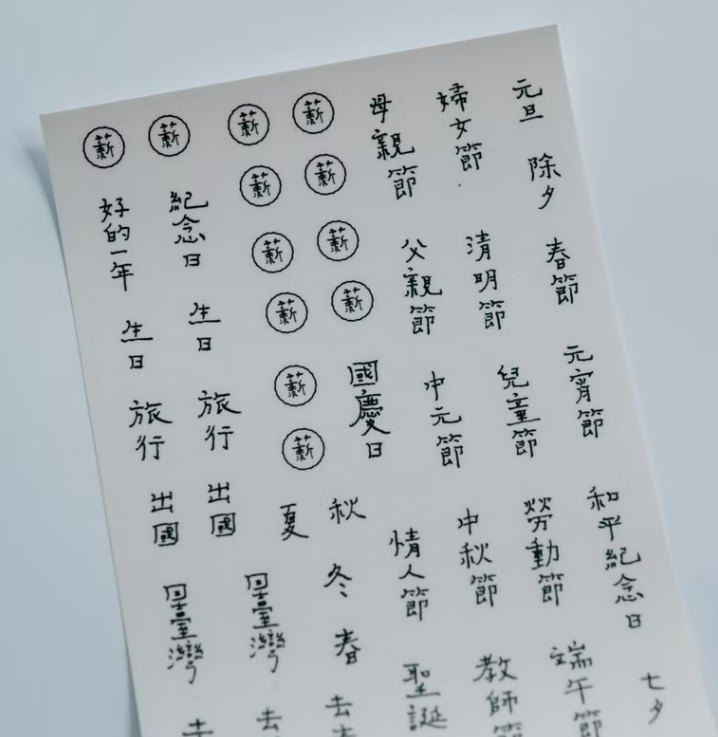 元旦
除夕
春節
元宵節
和平紀念日
七夕
婦女節
清明節
兒童節
勞動節
端午節
母親節
父親節
中元節
中秋節
教師節
情人節
聖誕
薪
薪
薪
薪
國慶日
秋
冬
春
去
薪
薪
薪
薪
薪
薪
夏
薪
紀念日
生日
旅行
出國
回臺灣
去
薪
好的一年
生日
旅行
出國
回臺灣
去